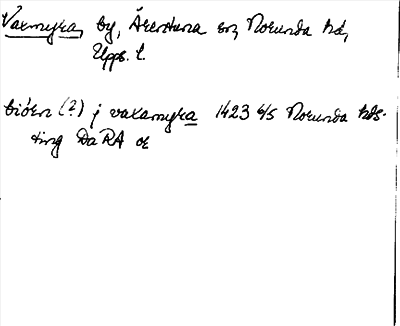 Vaxmyra, by, Ärentuna sn, Norunda hd,
Upps. l.
biörn (?) j vaxamyra 1423 6/5 Norunda hds-
ting Da RA or